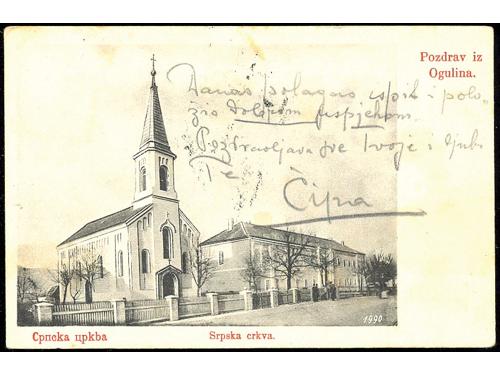 Pozdrav iz
Ogulina.
Danas polagao ispit i polo-
žio dobrim uspjehom.
Pozdravljava sve Tvoje i ljubi
Te
Čipa
Српска црква
Srpska crkva.
1990